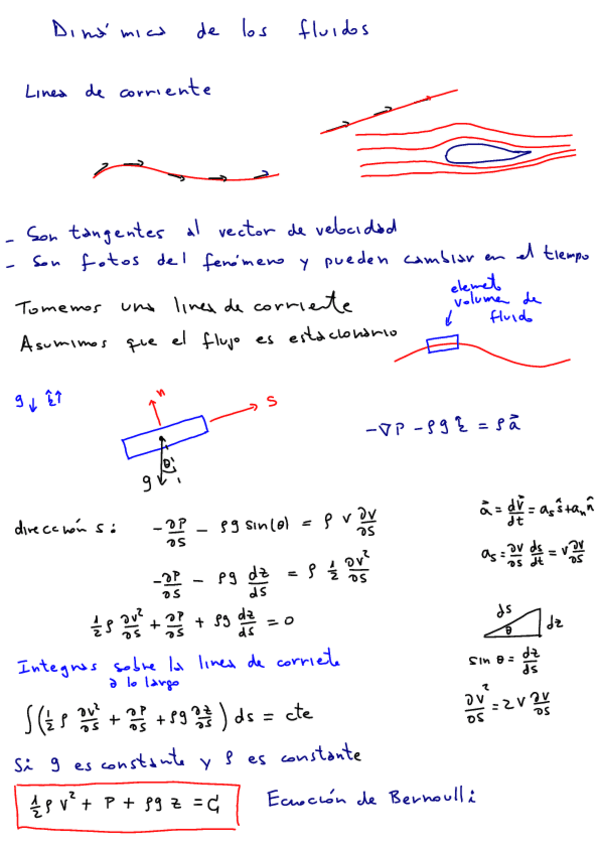 Dinámica de los fluidos
Linea de corriente
- Son tangentes al vector de velocidad
- Son fotos del fenómeno y pueden cambiar en el tiempo
Tomemos una linea de corriente
Asumimos que el flujo es estacionario
elemeto
volumen de
fluido
g↓ ẑ↑
n
s
θ
g
-∇P - ρg ẑ = ρa⃗
dirección s: -∂P/∂s - ρg sin(θ) = ρ v ∂v/∂s
a⃗ = dv⃗/dt = aₛŝ + aₙn̂
-∂P/∂s - ρg dz/ds = ρ 1/2 ∂v²/∂s
aₛ = ∂v/∂s ds/dt = v∂v/∂s
1/2 ρ ∂v²/∂s + ∂P/∂s + ρg dz/ds = 0
ds
dz
θ
sin θ = dz/ds
Integras sobre la linea de corriete
a lo largo
∂v²/∂s = 2v ∂v/∂s
∫(1/2 ρ ∂v²/∂s + ∂P/∂s + ρg ∂z/∂s) ds = cte
Si g es constante y ρ es constante
1/2 ρ v² + P + ρg z = C
Ecuación de Bernoulli